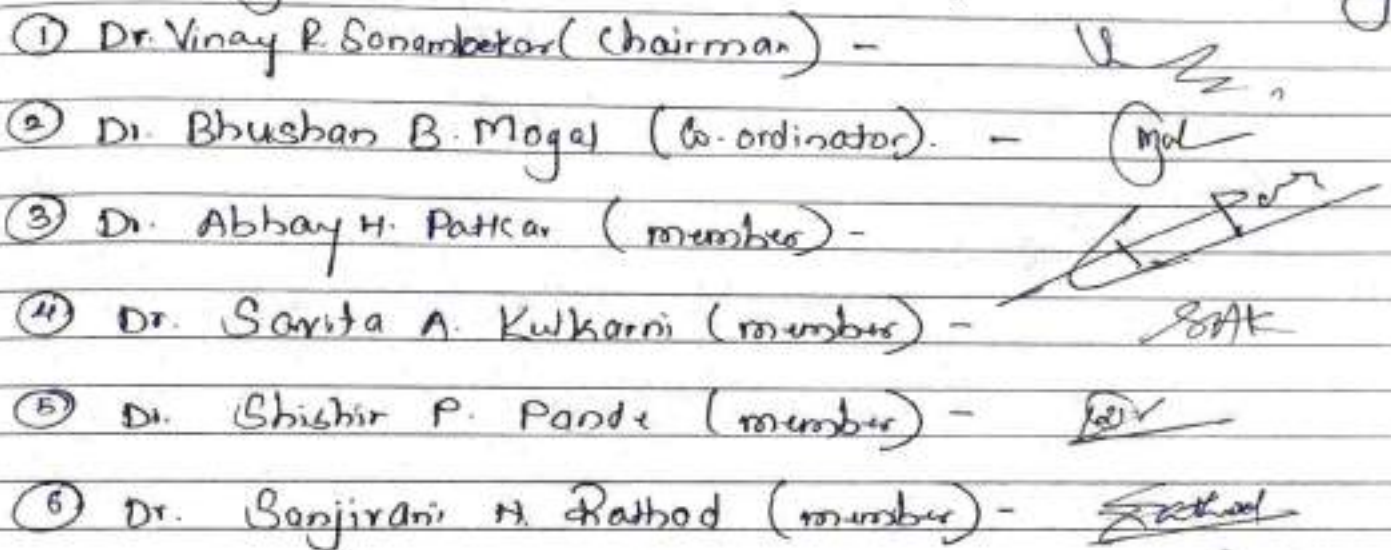 ① Dr. Vinay R. Sonambekar (Chairman) -
② Dr. Bhushan B. Mogal (Co-ordinator). -
③ Dr. Abhay H. Patkar (member) -
④ Dr. Savita A. Kulkarni (member) - SAK
⑤ Dr. Shishir P. Pande (member) -
⑥ Dr. Sanjivani N. Rathod (member) - Rathod